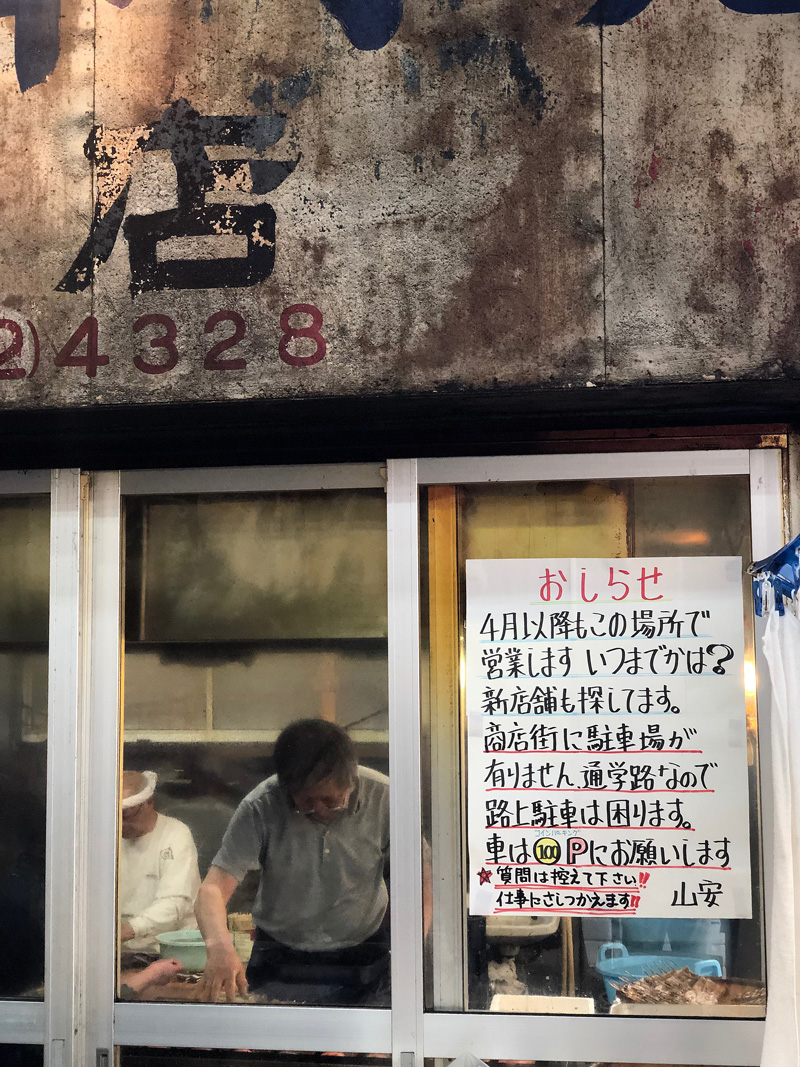 店
2)4328
おしらせ
4月以降もこの場所で
営業します いつまでかは?
新店舗も探してます。
商店街に駐車場が
有りません、通学路なので
路上駐車は困ります。
コインパーキング
車は100 Pにお願いします
★質問は控えて下さい!!
仕事にさしつかえます!!
山安